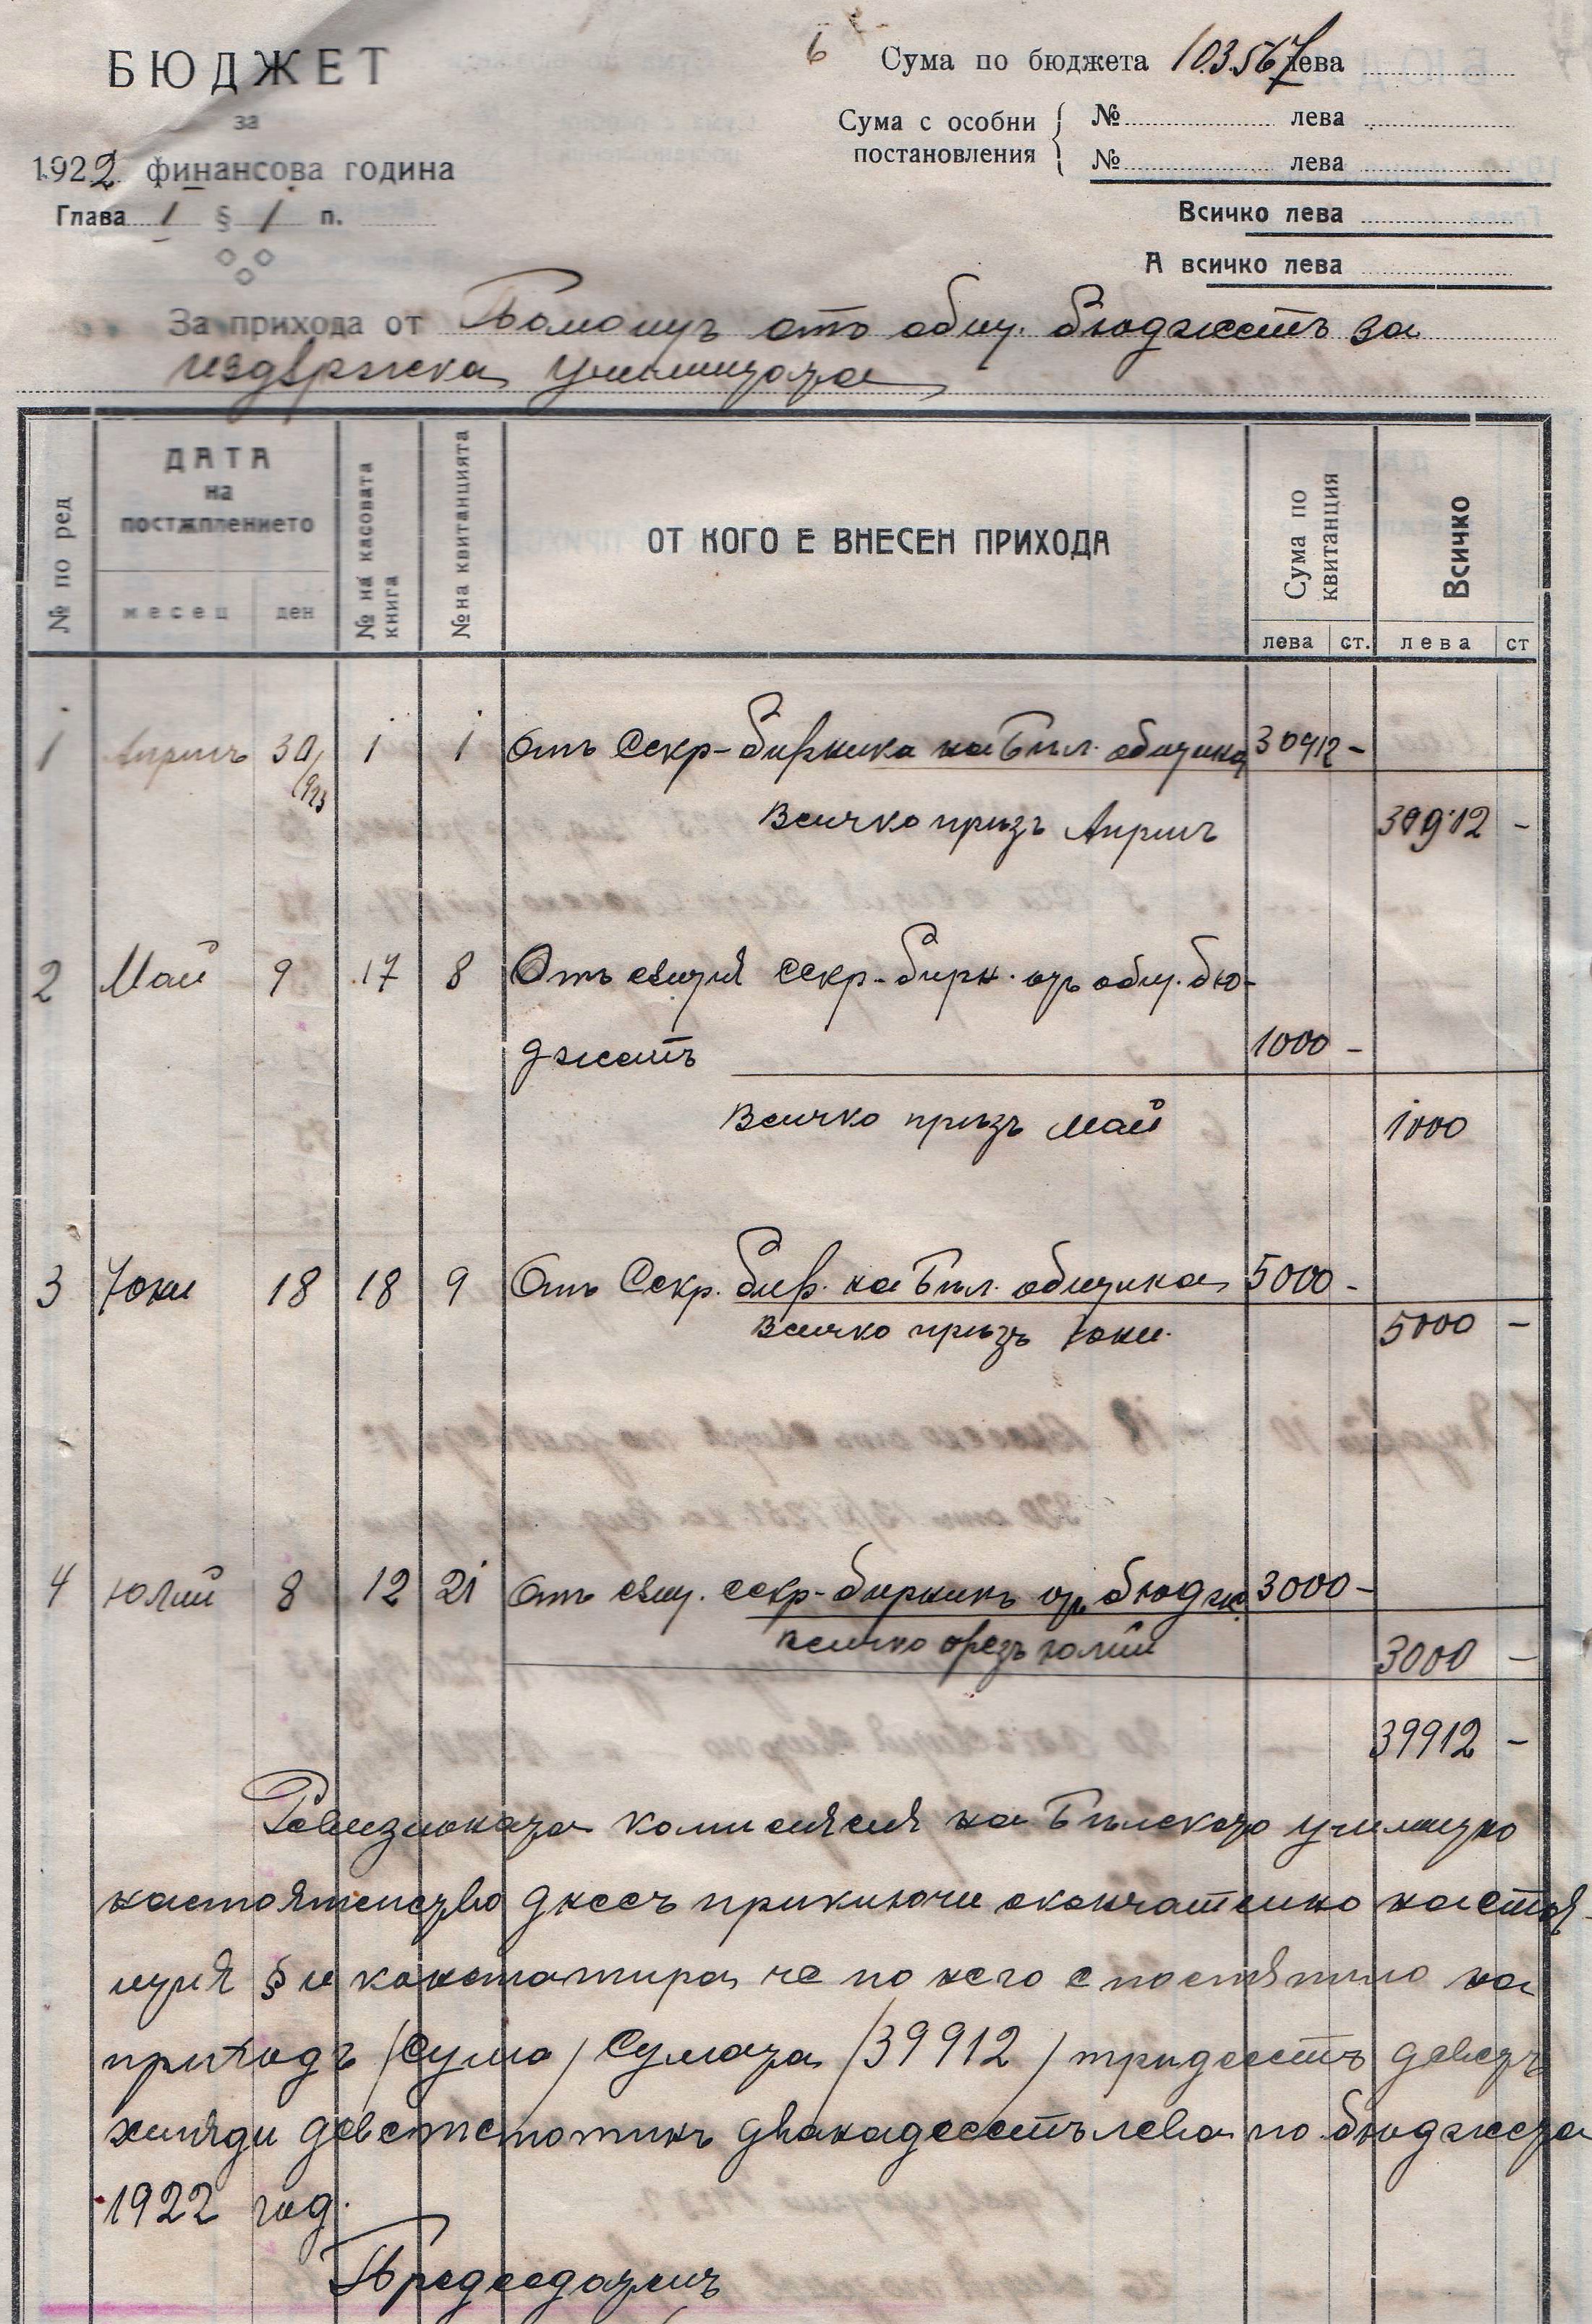 БЮДЖЕТ
за
1922 финансова година
Глава I § 1 п.
6 Сума по бюджета 103.567 лева
Сума с особни постановления
№ лева
№ лева
Всичко лева
А всичко лева
За прихода от Помощъ отъ общ. бюджетъ за
издръжка училищата
№ по ред
ДАТА
на
постѫплението
месец ден
№ на касовата книга
№ на квитанцията
ОТ КОГО Е ВНЕСЕН ПРИХОДА
Сума по квитанция
Всичко
лева ст. лева ст
1 Априлъ 30/923 1 1 Отъ Секр-бирника на Бѣл. община 30912 -
Всичко прѣзъ Априлъ 30912 -
2 Май 9 17 8 Отъ сѫщия секр-бирн. отъ общ. бю-
джетъ 1000 -
Всичко прѣзъ Май 1000
3 Юни 18 18 9 Отъ Секр. бир. на Бѣл. община 5000 -
Всичко прѣзъ Юни. 5000 -
4 Юлий 8 12 21 Отъ сѫщ. секр-бирникъ отъ бюдж. 3000 -
Всичко презъ юлий 3000 -
39912 -
Ревизионата комисия на Бѣлското училищно
настоятелство днесъ приключи окончателно настоя-
щия § и констатира че по него е постѫпило на
приходъ /сума/ сумата /39912/ тридесетъ деветь
хиляди деветстотинъ дванадесетъ лева по бюджета
1922 год.
Председатель